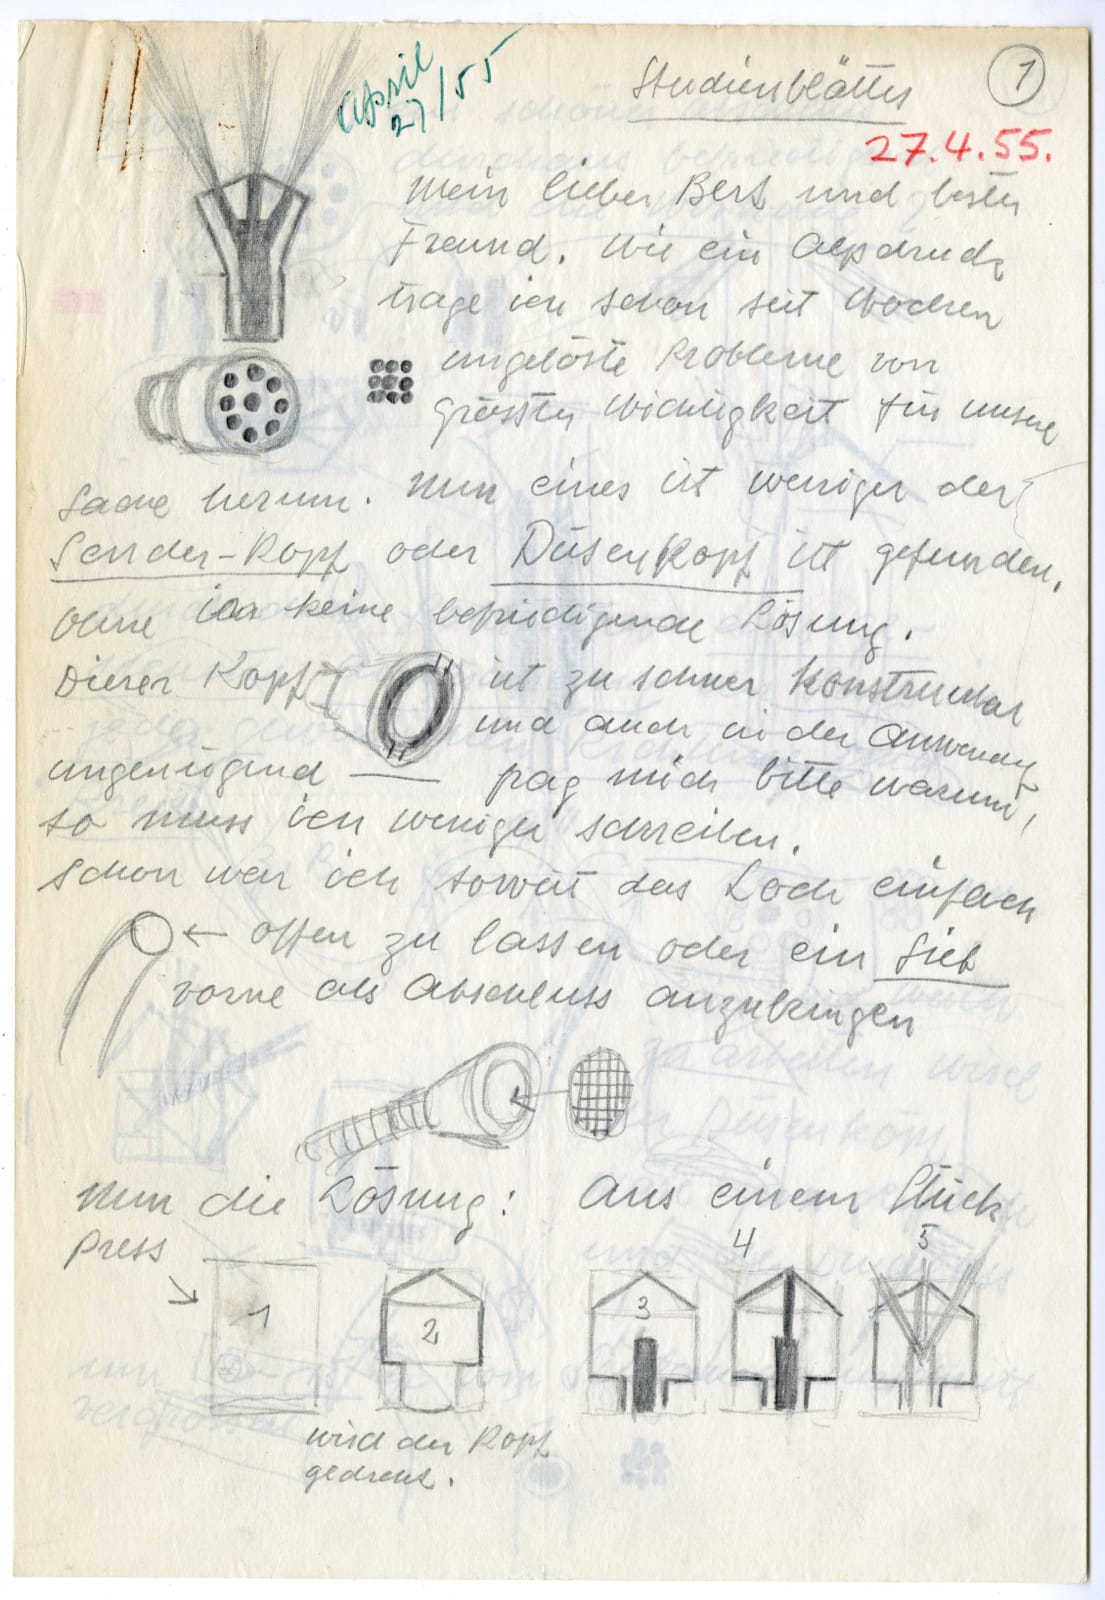 April
27/55
Studienblätter
1
27.4.55.
Mein lieber Bert und bester
Freund. Wie ein Alpdruck
trage ich schon seit Wochen
ungelöste Probleme von
grösster Wichtigkeit für unsere
Sache herum. Nun eines ist weniger der
Sender-Kopf oder Düsenkopf ist gefunden.
Ohne ihn keine befriedigende Lösung.
Dieser Kopf ist zu schwer konstruierbar
und auch in der Anwendung
ungenügend — frag mich bitte warum,
so muss ich weniger schreiben.
Schon war ich soweit das Loch einfach
offen zu lassen oder ein Sieb
vorne als Abschluss anzubringen
Nun die Lösung: Aus einem Stück
Press
1
2
3
4
5
wird der Kopf
gedreht.